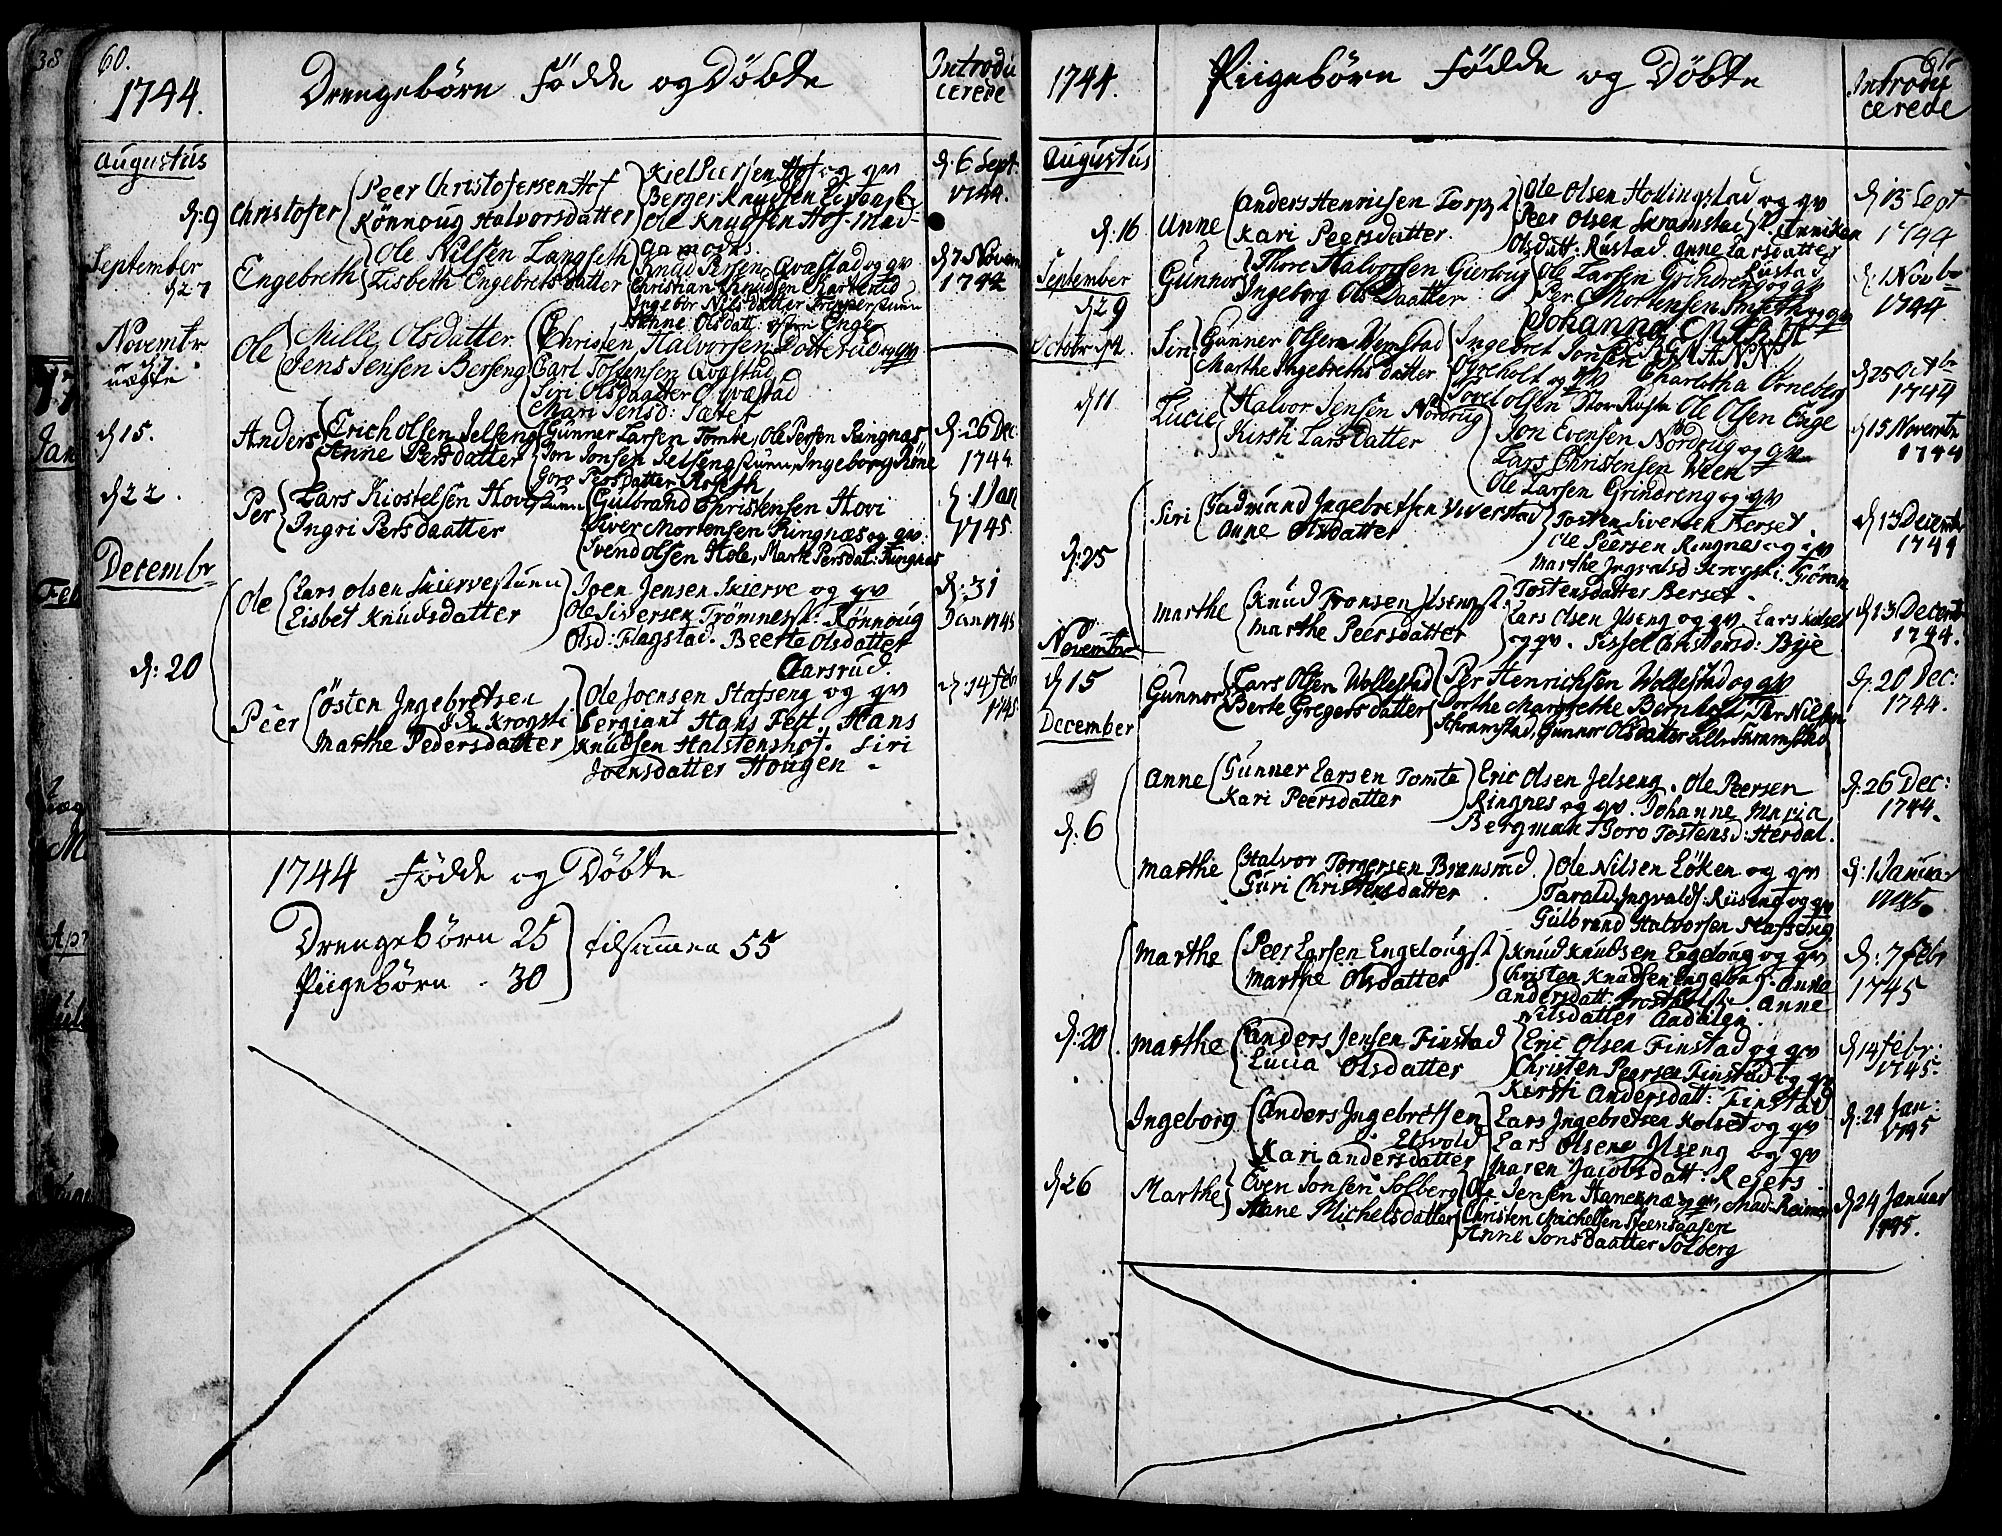 60.
1744.
Drengebörn Födde og Döbte
Introdu
cerede
Augustus
d: 9 Christofer
Peer Christofersen Hof
Könnoug Halvorsdatter
Kiel Larsen Hof og qv
Berger Knudsen
Ole Knudsen Hof. Mad-
Gamods.
d: 6 Sept
1744.
September
d 27
Engebreth
Ole Nilsen Langseth
Lisbeth Engebrets datter
Knud Persen Qvæstad og qv
Christian Knudsen
Ingebor Nils datter
Anne Olsdatt: Enge
d 7 Novem
1744
Novembr
uægte
Ole
Mille Olsdatter
Jens Jensen Berseng
Christen Halvorsen Dotterud og qv
Carl Tostensen Qvæstad
Siri Olsdaatter Qvæstad
Mari Jensd: Sæter
d 15.
Anders
Erich Olsen Jelseng
Anne Persdatter
Gunner Larsen Tomte, Ole Persen Ringnæs
Jon Jonsen Jelsengstuen, Ingeborg
Goro Persdatter
d: 26 Dec
1744.
d 22.
Per
Lars Kiostelsen Hovi
Ingri Persdaatter
Gulbrand Christensen Hovi
Siver Mortensen Ringnæs og qv.
Svend Olsen Hole, Marte Persdat: Ringnæs
d: 1 Jan
1745.
Decembr
Ole
Lars Olsen Skiervestuen
Lisbet Knudsdatter
Iven Jensen Skierve og qv
Ole Siversen Trömnesst: Könnoug
Olsd: Flagstad. Beerte Olsdatter
Aarsrud.
d: 31
Jan 1745
d: 20
Peer
Östen Ingebretsen
Krogsti
Marthe Pedersdatter
Ole Joensen Stafseng og qv
Sergiant Hans Fett. Hans
Knudsen Halstenshof. Siri
Joensdatter Hougen.
d: 14 febr
1745
1744 Födde og Döbte
Drengebörn 25
Piigebörn - 30
tilsammen 55
61.
1744.
Piigebörn Födde og Döbte
Introdu
cerede
Augustus
d: 16
Unne
Anders Henrichsen Torp
Kari Peersdatter.
Ole Olsen Hollingstad og qv
Peer Olsen Skramstad Anniken
Olsdatt: Rustad. Anne Larsdatter
Rustad
d 13 Sept
1744
September
d 29
Gunnor
Thore Halvorsen Gierloug
Ingeborg Ols Daatter
Ole Larsen Grindereng og qv
Per Mortensen Smith og qv
Johanna Maria
BERGMANN
d: 1 Novbr
1744.
Octobr d 4.
Siri
Gunner Olsen Vemstad
Marthe Ingebreths datter
Ingebret Jonsen
Oppeholt og qv Charlotha Orneberg
d 25 Octbr
1744
d 11
Lucie
Halvor Jensen Nordrug
Kirsti Lars datter
Jorel Olsen Ole Olsen Enge
Jon Evensen Nordrug og qv
Lars Christensen Ween
Ole Larsen Grindreng og qv
d 15 Novembr
1744
d: 25
Siri
Gudmund Ingebretsen Ververstad
Anne Olsdatter
Tosten Siversen Berset
Ole Peersen Ringnes og qv
Marthe Gioran
Tostensdatter Berset.
d 13 Decembr
1744
Marthe
Knud Tronsen Jelsengst:
Marthe Peersdatter
Lars Olsen Jlseng og qv Lars Kolset
og qv. Sissel Christensd: Bye
d 13 Decemb
1744.
Novembr
d 15
Gunnor
Lars Olsen Wollestad
Berte Gregers datter
Per Henrichsen Wollestad og qv
Dorthe Margrethe Bernholt, Per Nilsen
Skramstad, Gunner Olsdatter Lille Skramstad
d: 20 Dec:
1744.
December
d: 6
Anne
Gunner Larsen Tomte
Kari Peersdatter
Eric Olsen Jelseng. Ole Peersen
Ringnes og qv. Johanne Maria
Bergman Goro Tostensd: Herdal.
d: 26 Dec:
1744.
Marthe
Halvor Torgersen Brensrud.
Guri Christensdatter
Ole Nilsen Löken og qv
Tarald Ingvalds: Riiseng og qv
Gulbrand Halvorsen Stafseng
d: 1 Januar
1745.
d: 20
Marthe
Peer Larsen Engelougst
Marthe Olsdatter
Knud Knudsen Engeloug og qv
Christen Knudsen Engeloug. Anna
Andersdatt: Anne
Nilsdatter Aadalen.
d: 7 febr
1745
Marthe
Anders Jensen Finstad
Lucia Olsdatter
Eric Olsen Finstad og qv
Christen Peersen Finstad og qv
Kirsti Andersdatt: Finstad
d 14 febr:
1745.
Ingeborg
Anders Ingebretsen
Elsvold
Kari Andersdatter
Lars Ingebretsen Kolset og qv
Lars Olsen Jlseng og qv
Maren Jacobsdatt: Rejers
d: 24 Jan:
1745
d 26
Marthe
Even Jonsen Solberg
Anne Michelsdatter
Ole Jensen Hamernæs og qv, Mad. Reimer
Christen Michelsen Steensaasen
Anne Jonsdaatter Solberg
d 24 Januar
1745.